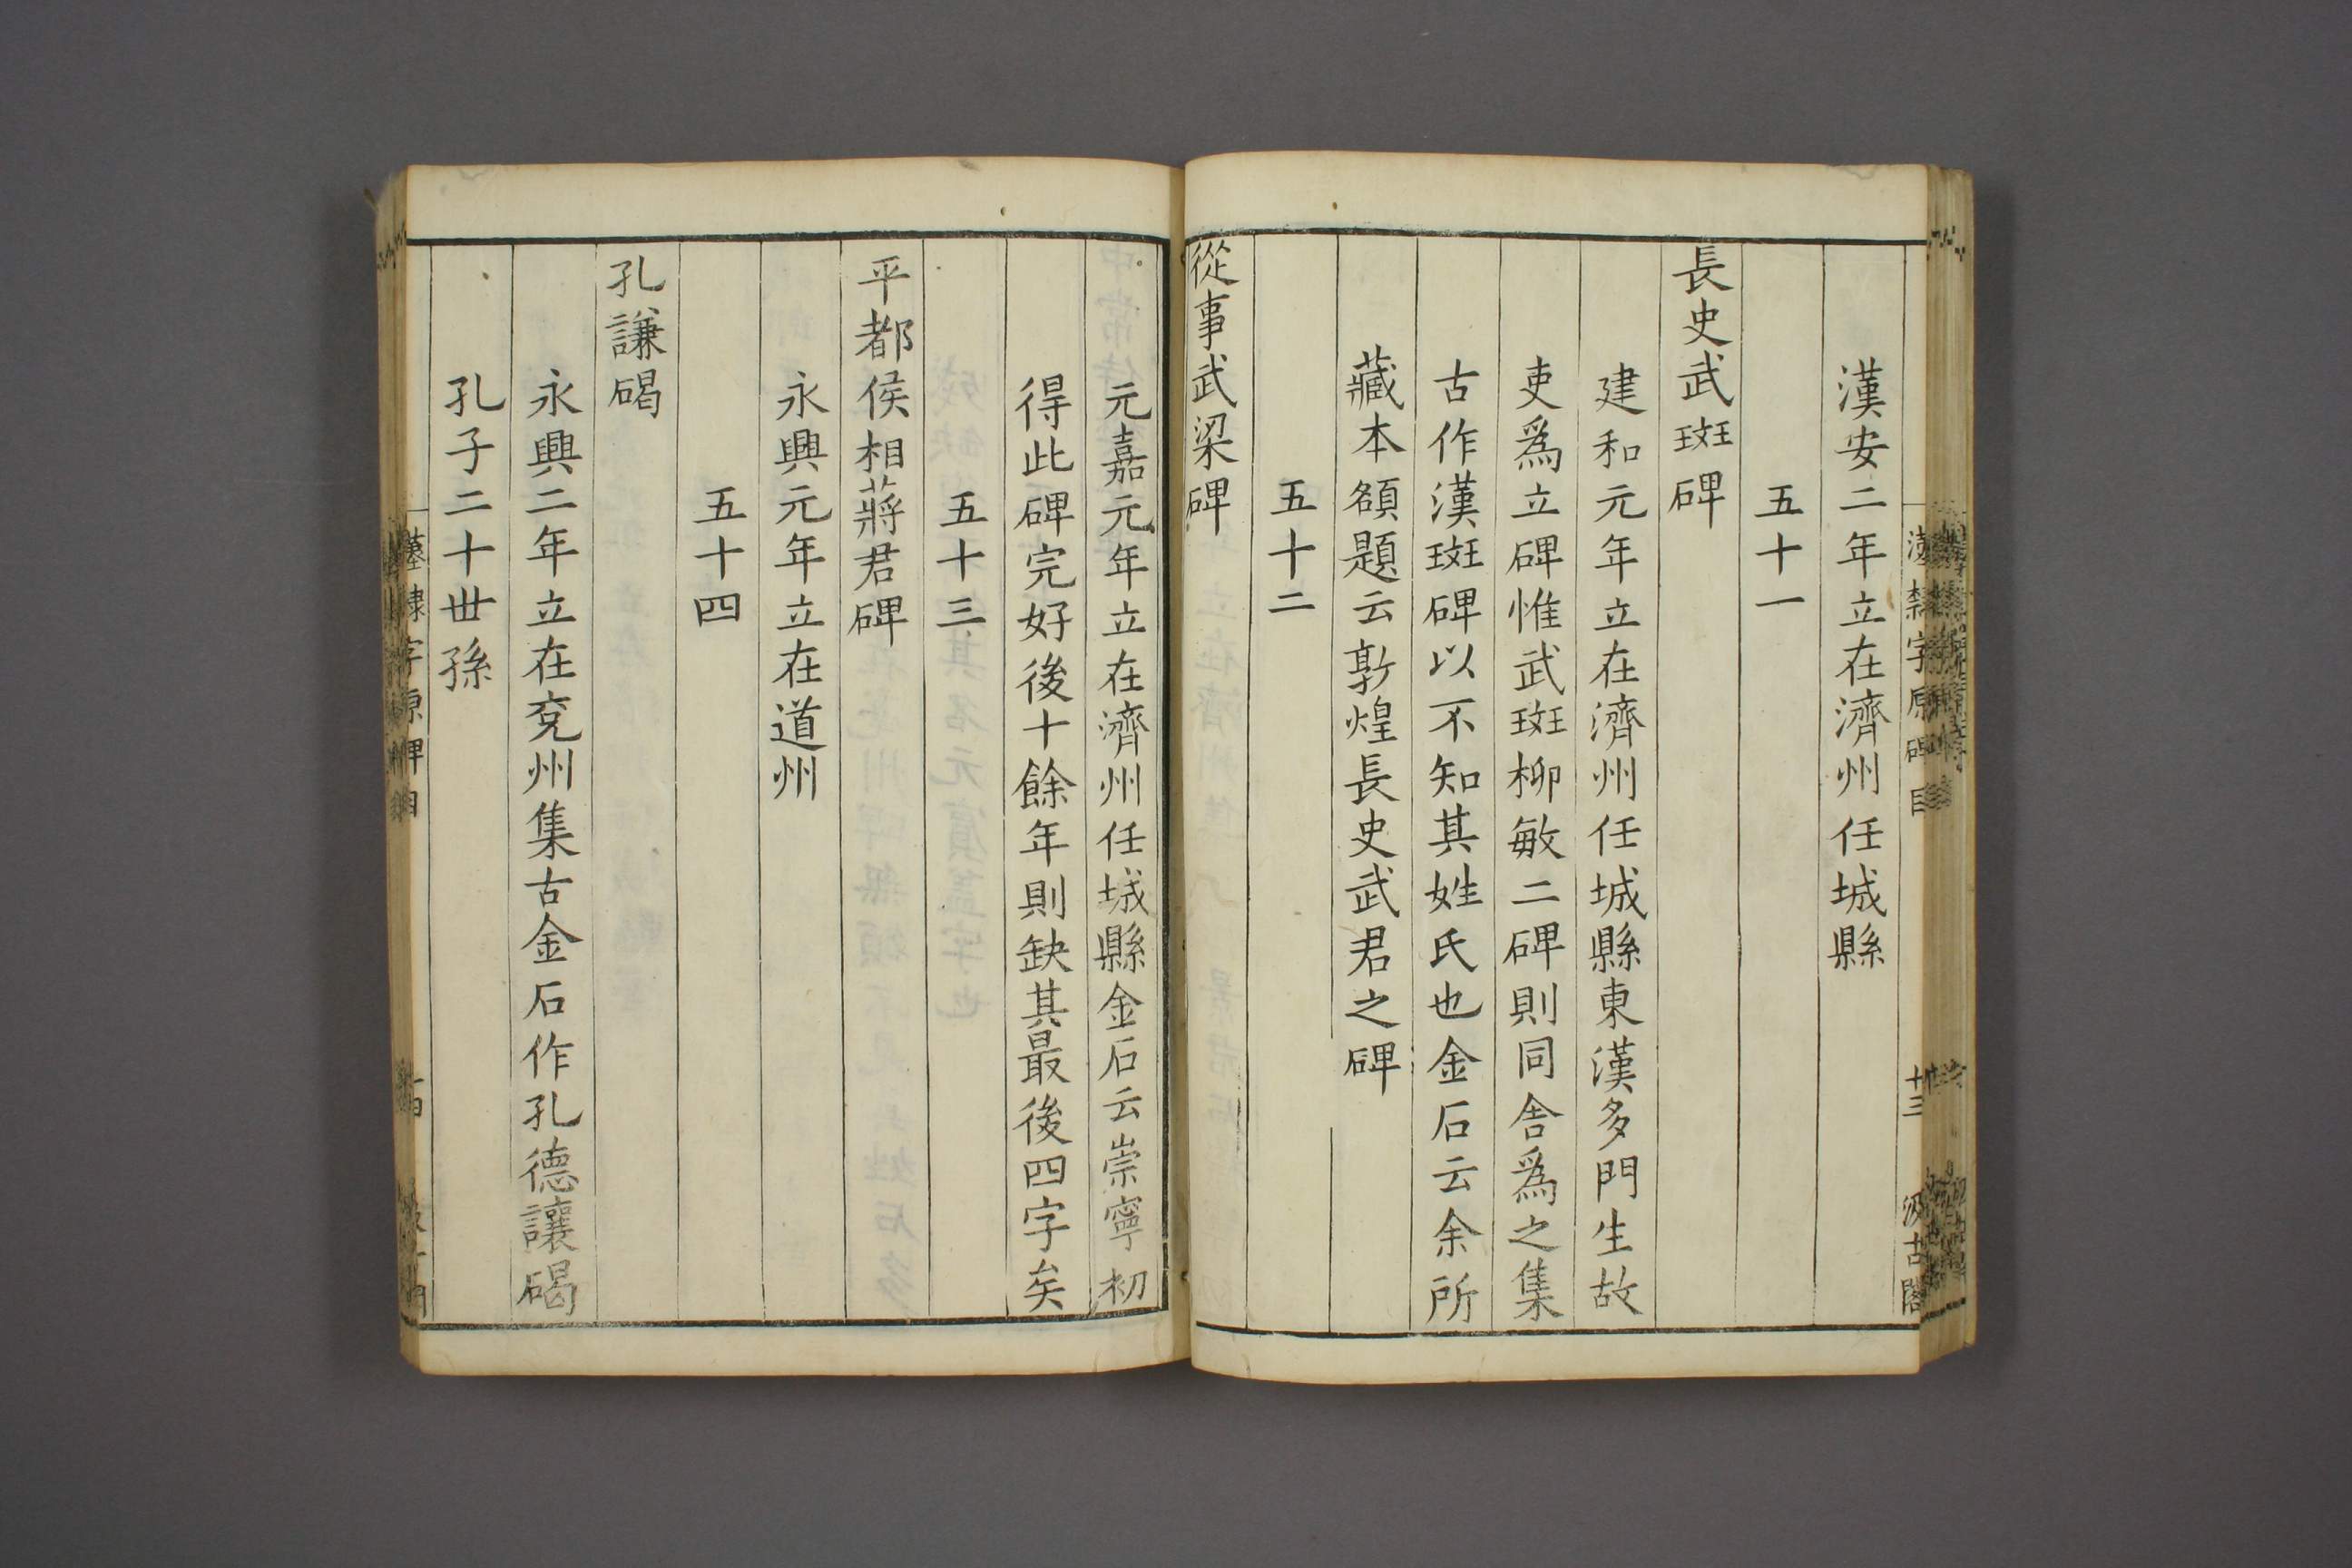 漢安二年立在濟州任城縣
五十一
長史武斑碑
建和元年立在濟州任城縣東漢多門生故
吏爲立碑惟武斑柳敏二碑則同舍爲之集
古作漢斑碑以不知其姓氏也金石云余所
藏本額題云敦煌長史武君之碑
五十二
從事武梁碑
元嘉元年立在濟州任城縣金石云崇寧初
得此碑完好後十餘年則缺其最後四字矣
五十三
平都侯相蔣君碑
永興元年立在道州
五十四
孔謙碣
永興二年立在兖州集古金石作孔德讓碣
孔子二十世孫
漢隸字原碑目
十三
汲古閣